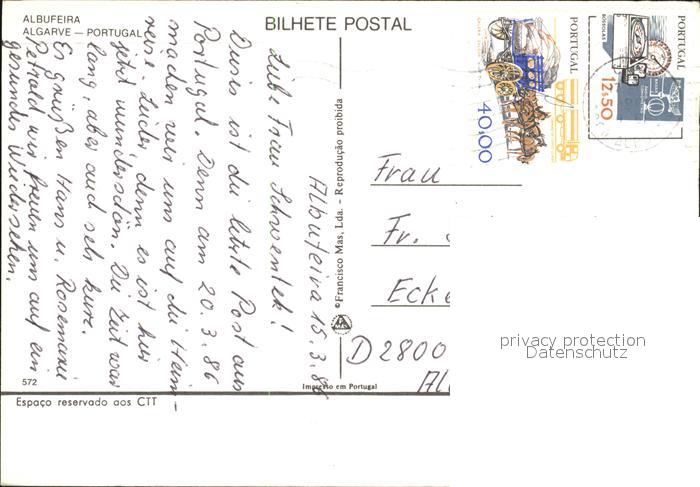 ALBUFEIRA
ALGARVE — PORTUGAL
BILHETE POSTAL
Albufeira 15.3.86
Liebe Frau Schwentek!
Dieses ist die letzte Post aus
Portugal. Denn am 20.3.86
machen wir uns auf die Heim-
reise. Leider denn es ist hier
jetzt wunderschön. Die Zeit war
lang, aber auch sehr kurz.
Es grüßen Hans u. Rosemarie
wir freuen uns auf ein
gesundes Wiedersehen.
572
Espaço reservado aos CTT
©Francisco Mas, Lda. - Reprodução proibida
Impresso em Portugal
PORTUGAL
40,00
BÚSSOLAS
PORTUGAL
12.50
Frau
Fr.
Ecke
D 2800
privacy protection
Datenschutz